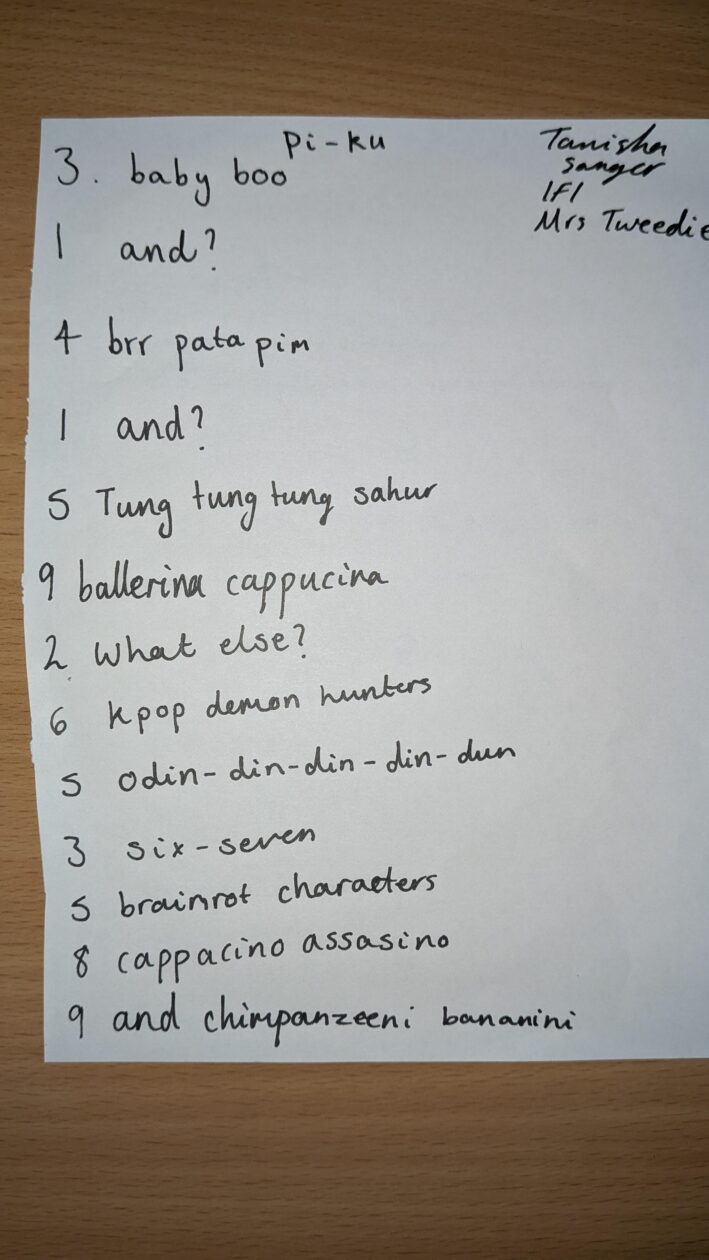 Pi-ku
Tanisha
Sanger
1F1
Mrs Tweedie
3. baby boo
1 and?
4 brr patapim
1 and?
5 Tung tung tung sahur
9 ballerina cappucina
2 What else?
6 kpop demon hunters
5 odin-din-din-din-dun
3 six-seven
5 brainrot characters
8 cappacino assasino
9 and chimpanzeeni bananini